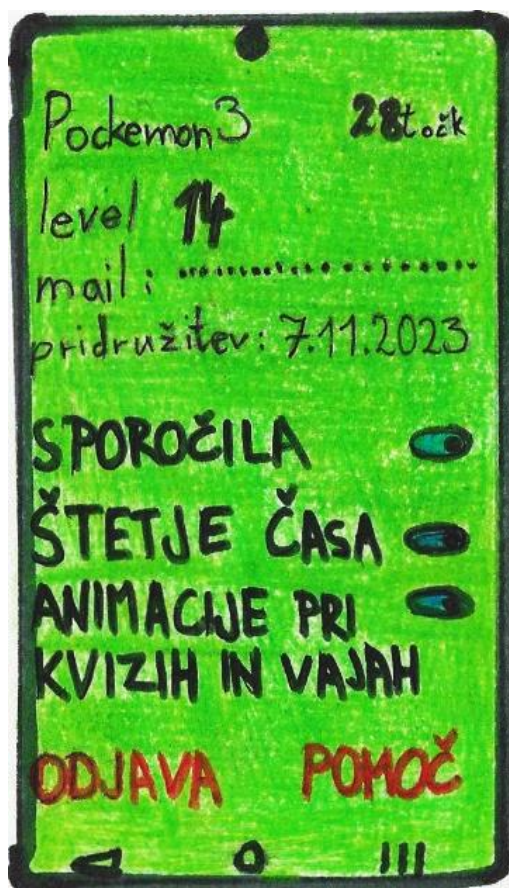 Pockemon3 28točk
level 14
mail: ........................
pridružitev: 7.11.2023
SPOROČILA
ŠTETJE ČASA
ANIMACIJE PRI
KVIZIH IN VAJAH
ODJAVA POMOČ